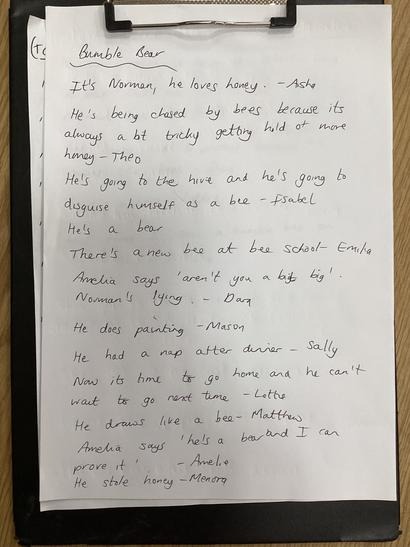 Bumble Bear
It's Norman, he loves honey. - Aisha
He's being chased by bees because its
always a bt tricky getting hold of more
honey - Theo
He's going to the hive and he's going to
disguise humself as a bee - Isabel
He's a bear
There's a new bee at bee school - Emilia
Amelia says 'aren't you a big big'.
Norman's lying. - Dara
He does painting - Mason
He had a nap after dinner - Sally
Now its time to go home and he can't
wait to go next time - Lottie
He draws like a bee - Matthew
Amelia says 'he's a bear and I can
prove it'. - Amelie
He stole honey -